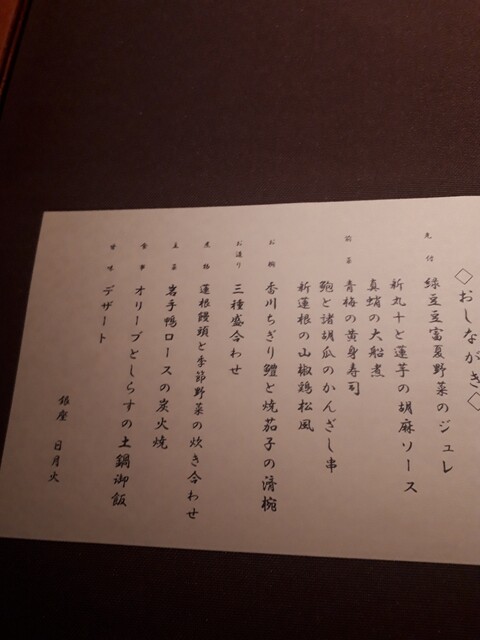 ◇おしながき◇
先付 緑豆豆富夏野菜のジュレ
新丸十と蓮芋の胡麻ソース
真蛸の大船煮
前菜 青梅の黄身寿司
鮑と諸胡瓜のかんざし串
新蓮根の山椒鶏松風
お椀 香川ちぎり鱧と焼茄子の清椀
お造り 三種盛合わせ
煮物 蓮根饅頭と季節野菜の炊き合わせ
主菜 岩手鴨ロースの炭火焼
食事 オリーブとしらすの土鍋御飯
甘味 デザート
銀座 日月火